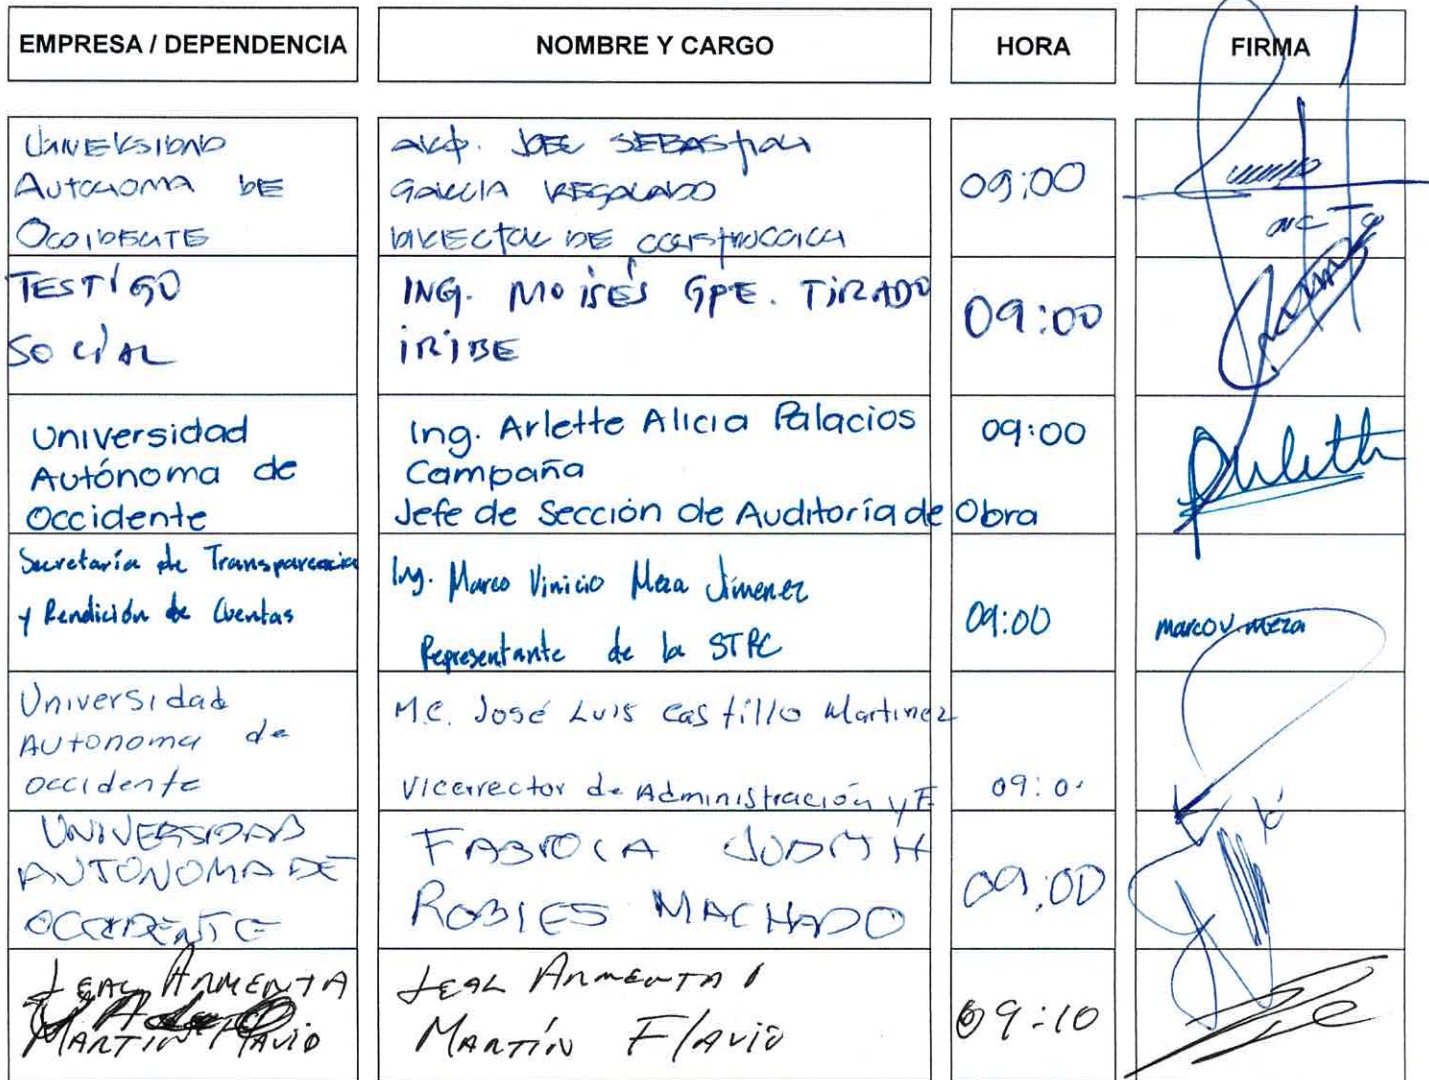 EMPRESA / DEPENDENCIA NOMBRE Y CARGO HORA FIRMA
UNIVERSIDAD
AUTONOMA DE
OCCIDENTE
ARQ. JOEL SEBASTIAN
GARCIA REGALADO
DIRECTOR DE CONSTRUCCION
09:00
TESTIGO
SOCIAL
ING. MOISÉS GPE. TIRADO
IRIBE
09:00
Universidad
Autónoma de
Occidente
Ing. Arlette Alicia Palacios
Campaña
Jefe de Sección de Auditoría de Obra
09:00
Arlette
Secretaría de Transparencia
y Rendición de Cuentas
Ing. Marco Vinicio Meza Jimenez
Representante de la STRC
09:00
Marco V. Meza
Universidad
Autonoma de
Occidente
M.C. José Luis Castillo Martinez
Vicerrector de Administración y F
09:0
UNIVERSIDAD
AUTONOMA DE
OCCIDENTE
FABIOLA JUDITH
ROBLES MACHADO
09:00
LEAL ARMENTA
MARTÍN FLAVIO
LEAL ARMENTA
MARTÍN FLAVIO
09:10